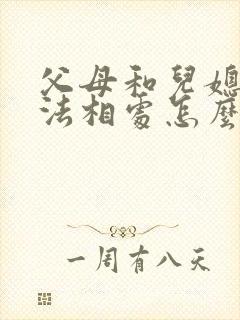 父母和兒媳
法相處怎麼
一周有八天